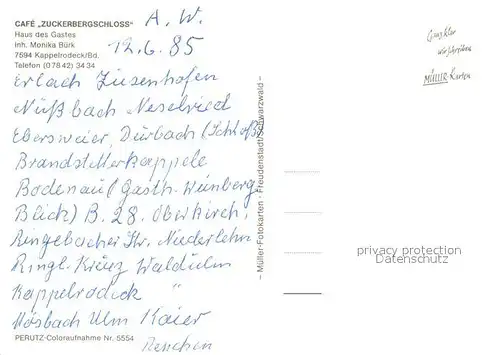 CAFÉ „ZUCKERBERGSCHLOSS"
Haus des Gastes
Inh. Monika Bürk
7594 Kappelrodeck/Bd.
Telefon (0 78 42) 34 34
A. W.
12.6.85
Erlach Zusenhofen
Nüßbach Nesselried
Ebersweier, Durbach (Schloß)
Brandstetterkappele
Bodenau (Gasth. Weinberg
Blick) B. 28. Oberkirch,
Ringelbacher Str. Niederlehn
Ringl. Kreuz Waldulm
Kappelrodeck "
Mösbach Ulm Kaier
Renchen
PERUTZ-Coloraufnahme Nr. 5554
– Müller-Fotokarten - Freudenstadt/Schwarzwald –
Ganz Klar
wir schreiben
MÜLLER-Karten
privacy protection
Datenschutz